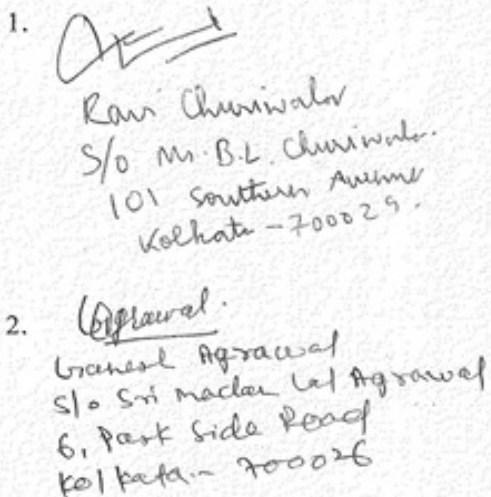 1.
Ravi Churiwala
S/o Mr. B.L. Churiwala.
101 Southern Avenue
Kolkata - 700029.
2. GAgrawal.
Ganesh Agrawal
S/o Sri Madan Lal Agrawal
6, Park Side Road
Kolkata - 700026